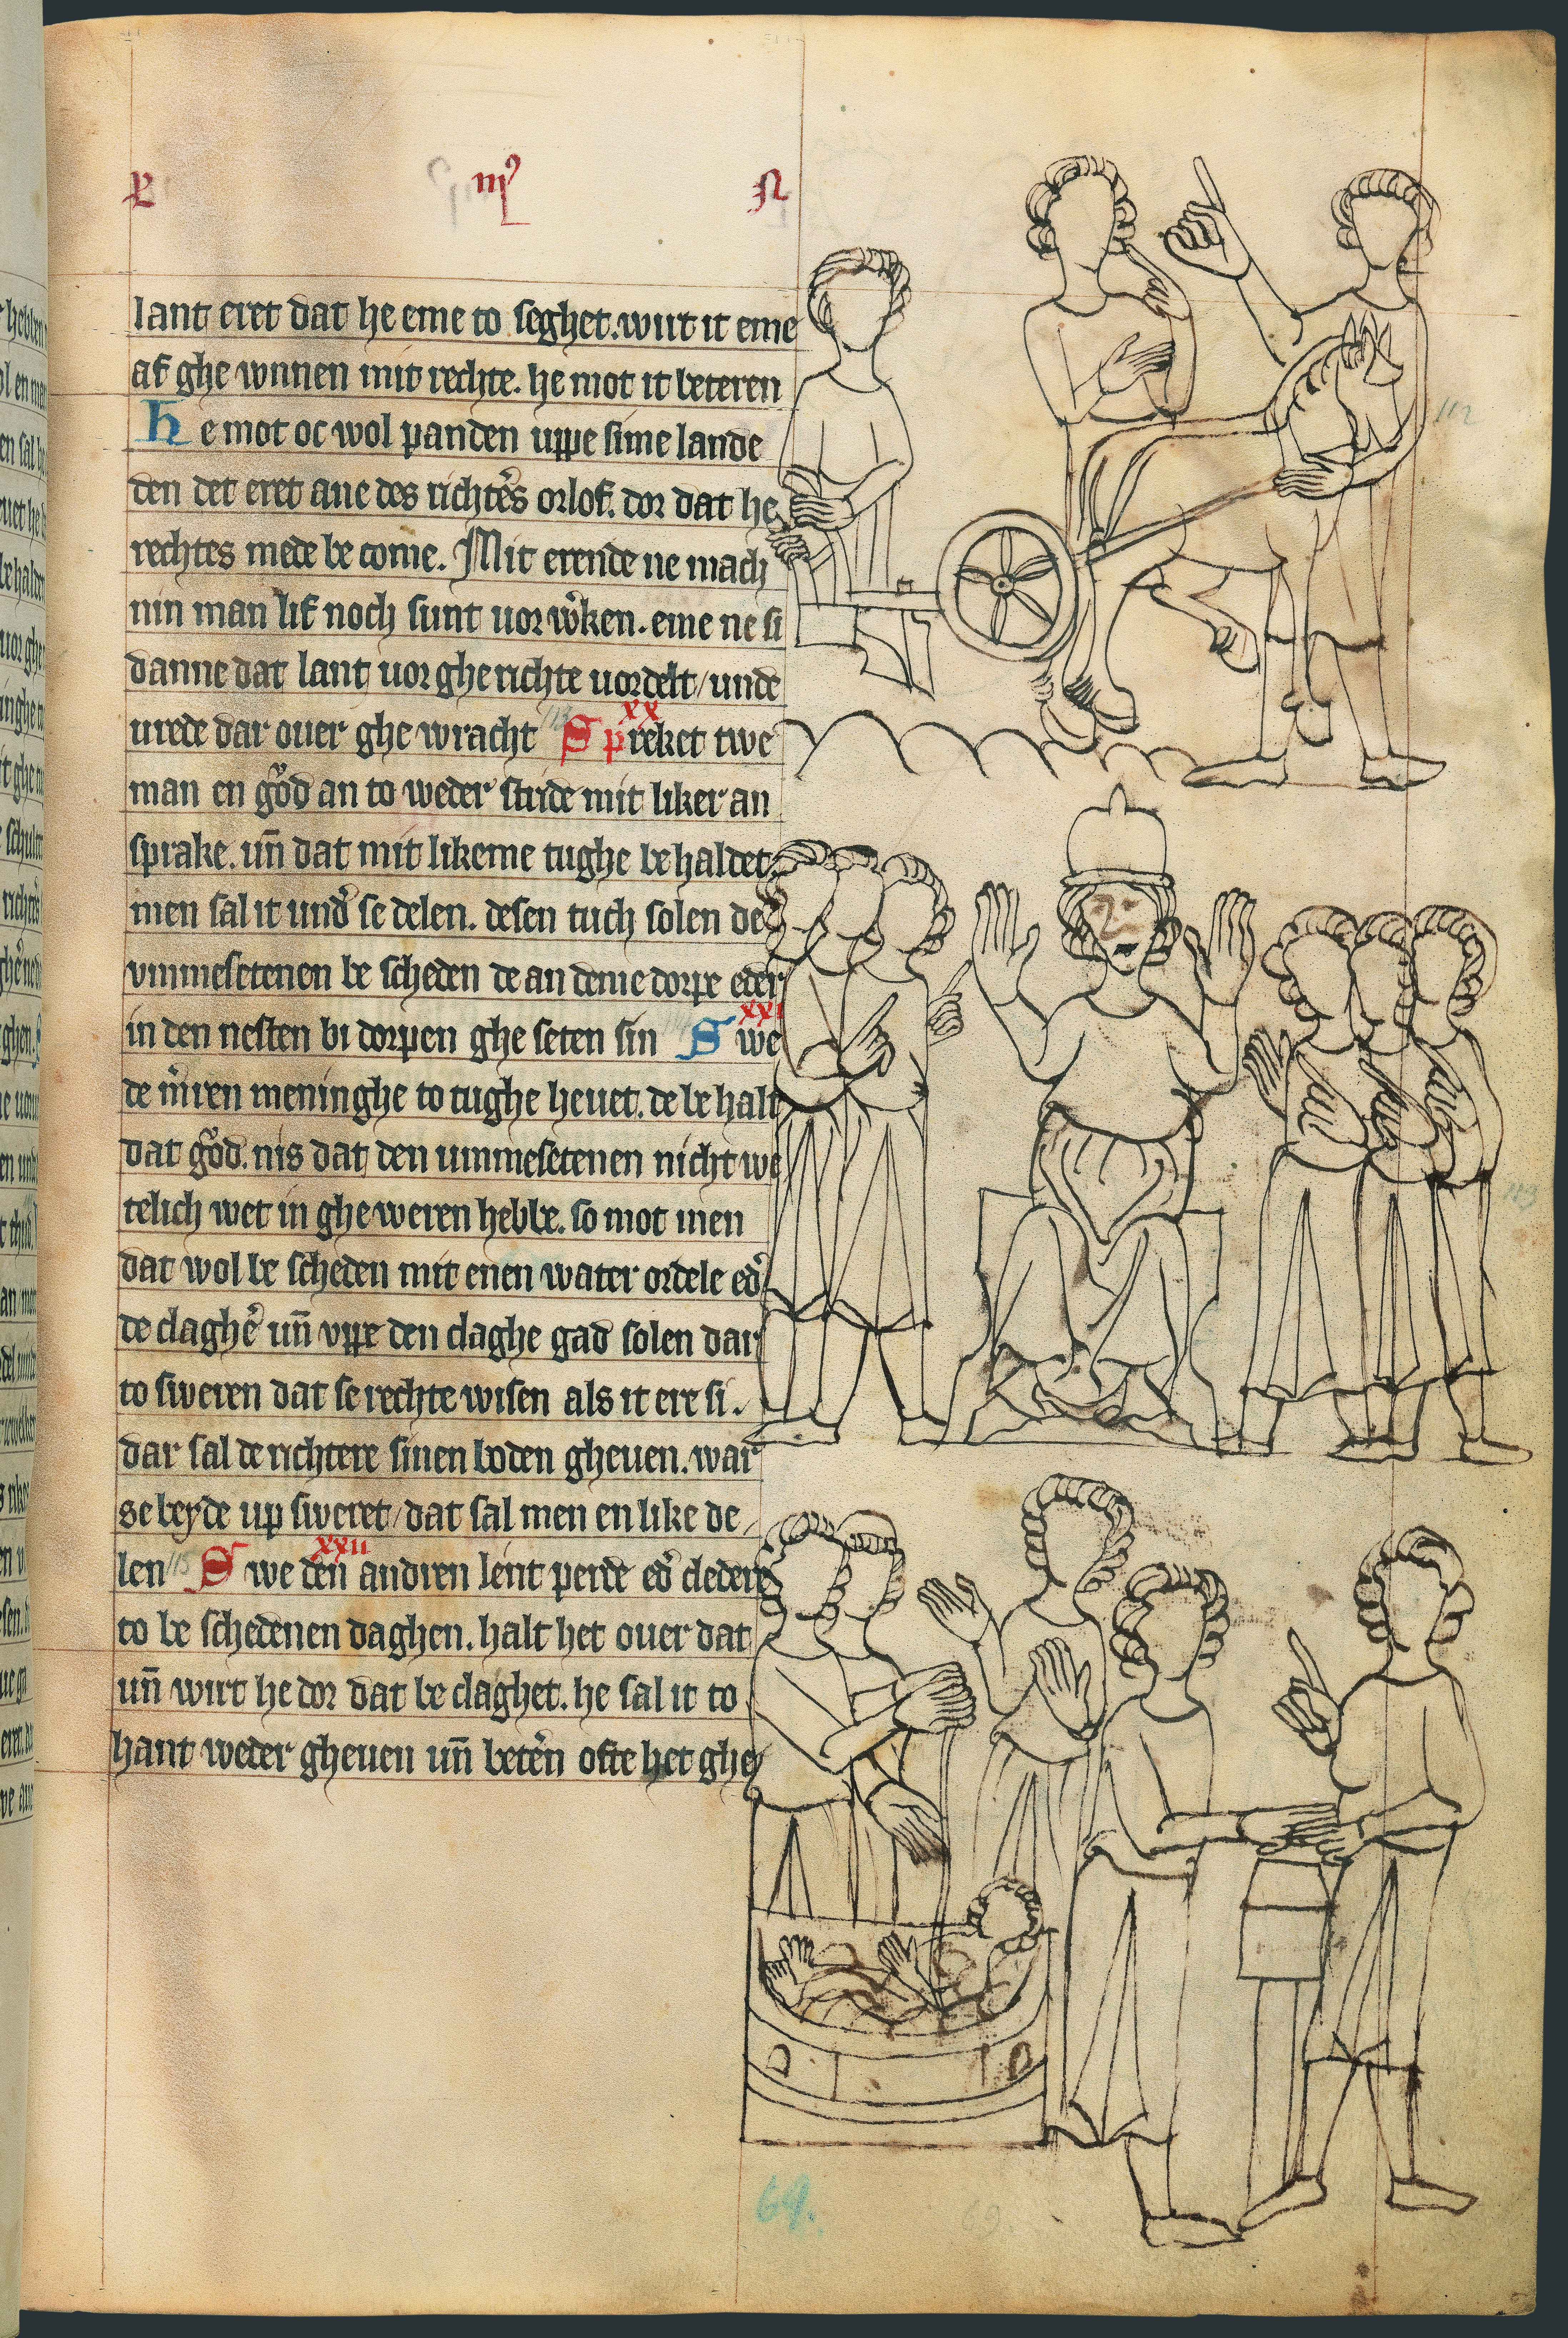 lant eret dat he eme to seghet. wirt it eme
af ghe wnnen mit rechte. he mot it beteren
He mot oc wol panden uppe sime lande
den det eret ane des richtẽs orlof. dor dat he
rechtes mede be come. Mit erende ne mach
nin man lif noch sunt uor wͦken. eme ne si
danne dat lant uor ghe richte uordelt / unde
urede dar ouer ghe wracht xx Spreket twe
man en gͦod an to weder stride mit liker an
sprake. uñ dat mit likeme tughe be haldet.
men sal it und̉ se delen. desen tuch solen de
vmmesetenen be scheden de an deme dorpe eder
in den nesten bi dorpen ghe seten sin xxi Swe
de m̉ren meninghe to tughe heuet. de be halt
dat gͦod. nis dat den ummesetenen nicht we
telich wet in ghe weren hebbe. so mot men
dat wol be scheden mit enen water ordele ed̉
de claghẻ uñ vppe den claghe gad solen dar
to sweren dat se rechte wisen als it ere si.
dar sal de richtere sinen boden gheuen. war
se beyde up sweret / dat sal men en like de
len 115 xxii Swe den andren lent perde ed̉ cledere
to be schedenen daghen. halt het ouer dat
uñ wirt he dor dat be claghet. he sal it to
hant weder gheuen uñ betẻn ofte het ghe
112
113
69.